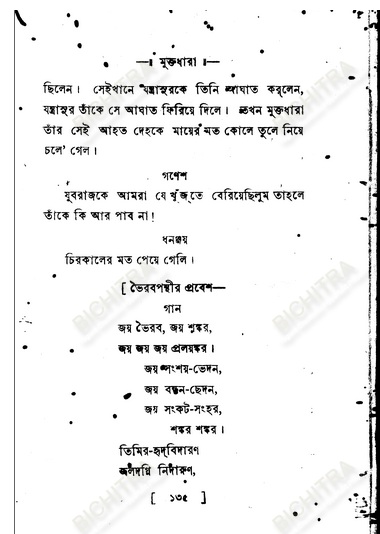 —৷ মুক্তধারা ৷—
ছিলেন। সেইখানে যন্ত্রাসুরকে তিনি আঘাত করলেন,
যন্ত্রাসুর তাঁকে সে আঘাত ফিরিয়ে দিলে। তখন মুক্তধারা
তাঁর সেই আহত দেহকে মায়ের মত কোলে তুলে নিয়ে
চলে' গেল।
গণেশ
যুবরাজকে আমরা যে খুঁজ্‌তে বেরিয়েছিলুম তাহলে
তাঁকে কি আর পাব না!
ধনঞ্জয়
চিরকালের মত পেয়ে গেলি।
[ ভৈরবপন্থীর প্রবেশ—
গান
জয় ভৈরব, জয় শঙ্কর,
জয় জয় জয় প্রলয়ঙ্কর।
জয় সংশয়-ভেদন,
জয় বন্ধন-ছেদন,
জয় সংকট-সংহর,
শঙ্কর শঙ্কর।
তিমির-হৃদ্‌বিদারণ
জলদগ্নি নিদারুণ,
[ ১৩৫ ]
BICHITRA
BICHITRA
BICHITRA
BICHITRA
BICHITRA
BICHITRA